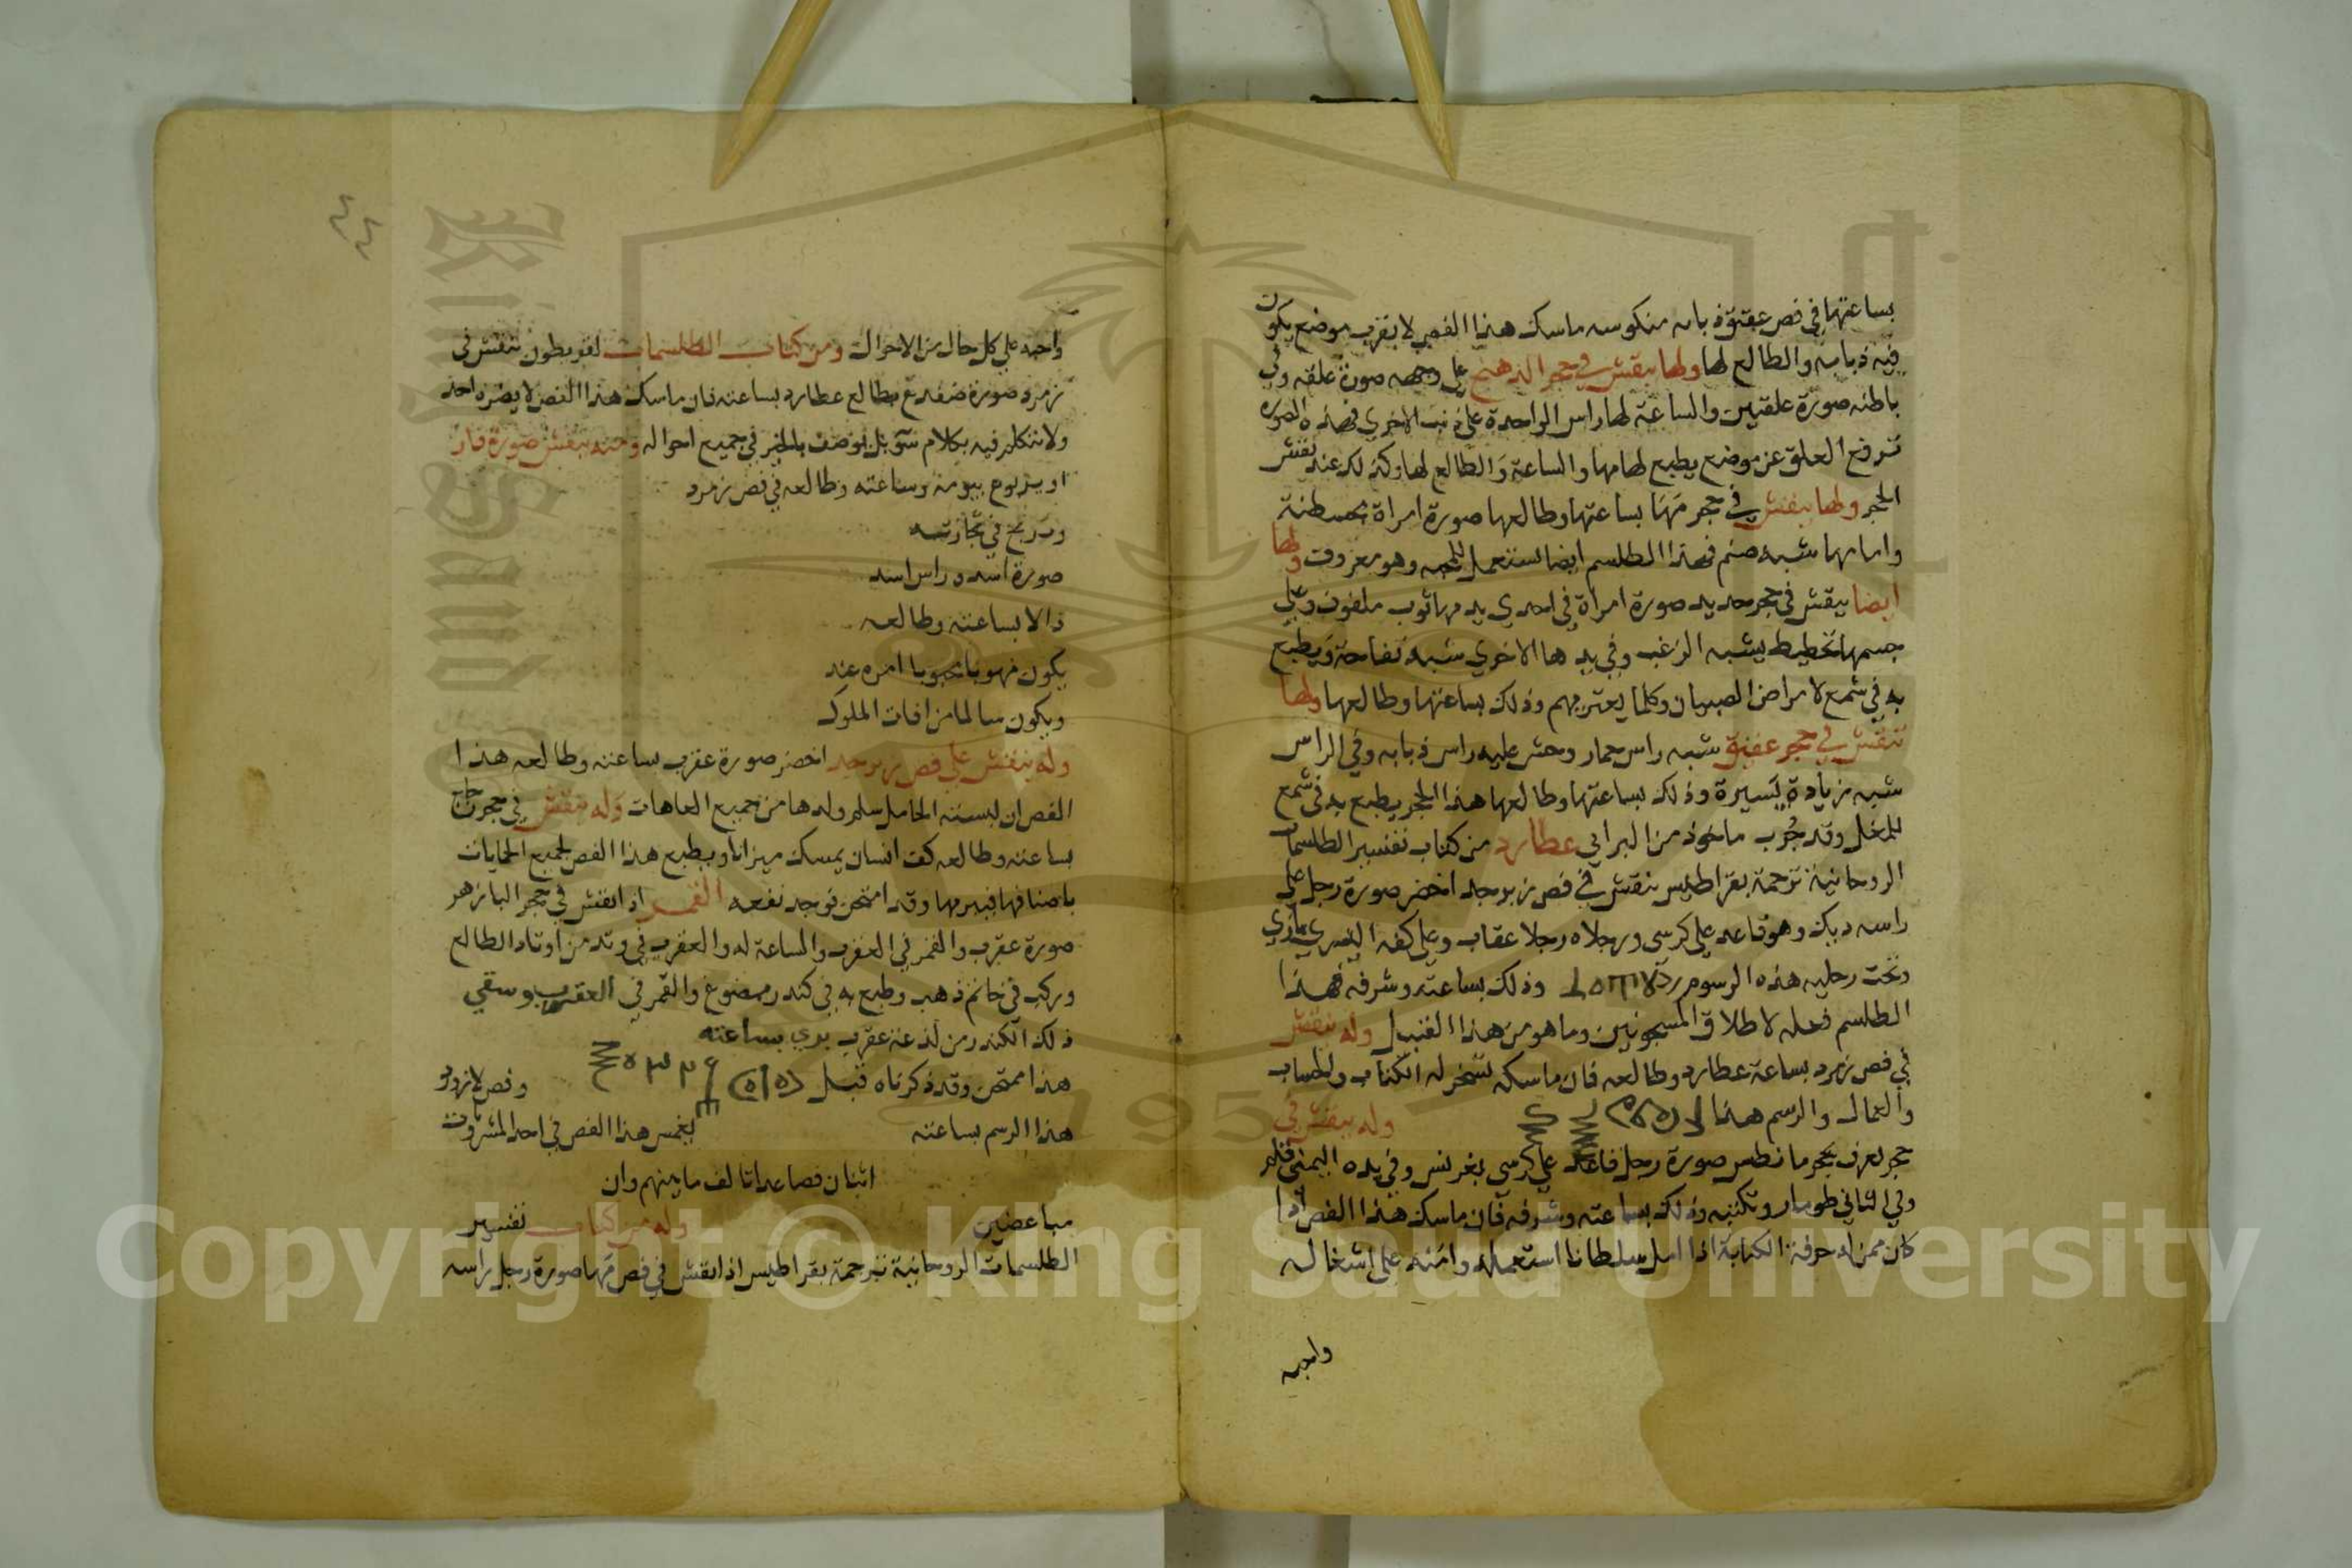 بساعتها في فص عقيق ذبابه منكوسه ماسك هذا الفص لا يقرب موضع يكون
فيه ذبابه والطالع لها ولها ينقش في حجر الدهنج على وجهه صورة علقه وفي
باطنه صورة علقتين والساعة لها راس الواحدة على ذنب الاخرى فهذه الصوره
ترفع العلق عن موضع يطبع لها مها والساعة والطالع لها وكذلك عند نقش
الحجر ولها ينقش في حجر مها بساعتها وطالعها صورة امراة
وامامها شبه صنم فهذا الطلسم ايضا يستعمل وهو معروف ولها
ايضا ينقش في حجر حديد صورة امراة في احدى يديها ثوب ملفوف وعلى
جسمها تخطيط يشبه الزغب وفي يدها الاخرى شبه تفاحة ويطبع
به في شمع لامراض الصبيان وكلما يعتريهم وذلك بساعتها وطالعها ولها
تنقش في حجر عقيق شبه راس حمار وحش عليه راس ذبابه وفي الراس
شبه زيادة يسيرة وذلك بساعتها وطالعها هذا الحجر يطبع به في شمع
للمغل وقد جُرب ماخوذ من البرابي عطارد من كتاب تفسير الطلسمات
الروحانية ترجمة بقراطيس ينقش في فص زبرجد اخضر صورة رجل على
راسه ديك وهو قاعد على كرسي ورجلاه رجلا عقاب وعلى كفه اليسرى بازي
وتحت رجليه هذه الرسوم وذلك بساعته وشرفه فهذا
الطلسم فعله لاطلاق المسجونين وما هو من هذا القبيل وله ينقش
في فص زمرد بساعة عطارد وطالعه فان ماسكه تسخر له الكتاب والحساب
والعمال والرسم هذا وله ينقش في
حجر يعرف بحجر صورة رجل قاعد على كرسي وفي يده اليمنى قلم
وفي الثاني طومار وتكتبه وذلك بساعته وشرفه فان ماسك هذا الفص اذا
كان ممن له حرفة الكتابة اذا امل سلطانا استعمله وامنه على اشغاله
واحبه
٤٤
واحبه على كل حال من الاحوال ومن كتاب الطلسمات تنقش في
زمرد صورة ضفدع بطالع عطارد بساعته فان ماسك هذا الفص لا يضره احد
ولا يتكلم فيه بكلام سوّ بل يوصف بالخير في جميع احواله ومنه ينقش صورة فار
او يربوع بيومه وساعته وطالعه في فص زمرد
ويربح في تجارته
صورة اسد وراس اسد
بساعته وطالعه
يكون محبوبا امره عند
ويكون سالما من افات الملوك
وله ينقش على فص زبرجد اخضر صورة عقرب بساعته وطالعه هذا
الفص ان لبسته الحامل سلم ولدها من جميع العاهات وله ينقش في حجر زجاج
بساعته وطالعه كف انسان يمسك ميزانا ويطبع هذا الفص لجميع الحمايات
باصنافها فيبريها وقد امتحن فوجد نفعه القمر اذا نقش في حجر البازهر
صورة عقرب والقمر في العقرب والساعة له والعقرب في وتد من اوتاد الطالع
وركب في خاتم ذهب وطبع به في كندر ممضوغ والقمر في العقرب وسقي
ذلك الكندر من لذعته عقرب بري بساعته
هذا ممتحن وقد ذكرناه قبل وفص لازورد
هذا الرسم بساعته يغمس هذا الفص في احد المشروبات
اثنان فصاعدا تالف ما بينهم وان
متباغضين وله من كتاب تفسير
الطلسمات الروحانية ترجمة بقراطيس اذا نقش في فص مها صورة رجل براسه
Copyright © King Saud University
1957